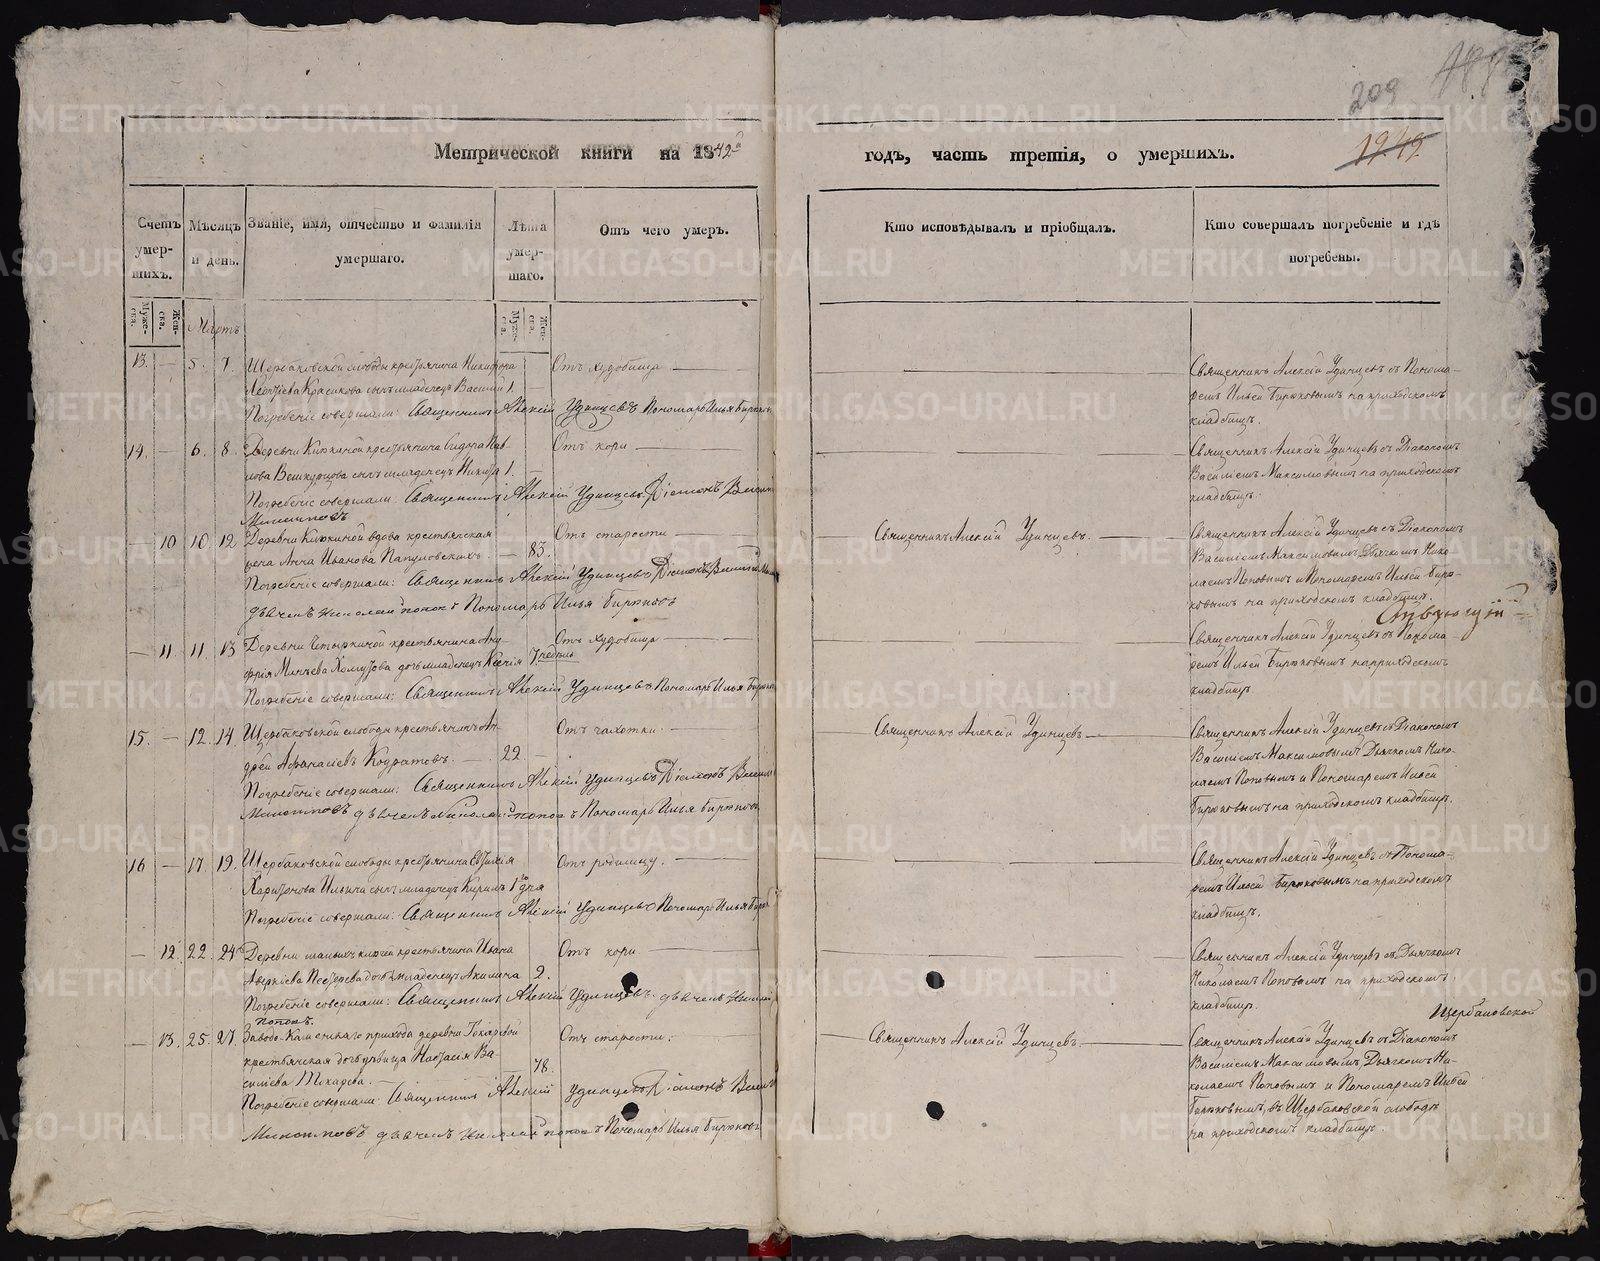 209
1249
Метрической книги на 1842й
годъ, часть третія, о умершихъ.
Счетъ умер-шихъ.
Мѣсяцъ и день.
Званіе, имя, отчество и фамилія умершаго.
Лѣта умер-шаго.
Отъ чего умеръ.
Кто исповѣдывалъ и пріобщалъ.
Кто совершалъ погребеніе и гдѣ погребены.
Муже-ска.
Жен-ска.
Мартъ
Муже-ска.
Жен-ска.
13. — 5. 7. Щербаковской слободы крестьянина Никифора
Леонтіева Красикова сынъ младенецъ Василій 1. —
Отъ худобища
Погребеніе совершали: Священникъ Алексій Удинцевъ Пономарь Илья Бирюковъ
Священникъ Алексій Удинцевъ съ Понома-
ремъ Ильей Бирюковымъ на приходскомъ
кладбищѣ.
14. — 6. 8. Деревни крестьянина Сидора Пав-
лова сынъ младенецъ Никита 1. —
Отъ кори
Погребеніе совершали: Священникъ Алексій Удинцевъ Діаконъ Василій
Максимовъ
Священникъ Алексій Удинцевъ съ Діакономъ
Василіемъ Максимовымъ на приходскомъ
кладбищѣ.
— 10 10 12 Деревни вдова крестьянская
жена Анна Иванова — 83.
Отъ старости
Погребеніе совершали: Священникъ Алексій Удинцевъ Діаконъ Василій
дьячекъ Николай Поповъ Пономарь Илья Бирюковъ
Священникъ Алексій Удинцевъ.
Священникъ Алексій Удинцевъ съ Діакономъ
Василіемъ Максимовымъ Дьячкомъ Нико-
лаемъ Поповымъ и Пономаремъ Ильей Бирю-
ковымъ на приходскомъ кладбищѣ.
— 11. 11. 13 Деревни крестьянина
дочь младенецъ 7. недѣль
Отъ худобища
Погребеніе совершали: Священникъ Алексій Удинцевъ Пономарь Илья Бирюковъ
Священникъ Алексій Удинцевъ съ Понома-
ремъ Ильей Бирюковымъ на приходскомъ
кладбищѣ
15. — 12. 14. Щербаковской слободы крестьянинъ Ан-
дрей Афанасіевъ Кодратовъ. — 22 —
Отъ чахотки.
Погребеніе совершали: Священникъ Алексій Удинцевъ Діаконъ Василій
Максимовъ дьячекъ Николай Поповъ Пономарь Илья Бирюковъ
Священникъ Алексій Удинцевъ
Священникъ Алексій Удинцевъ съ Діакономъ
Василіемъ Максимовымъ Дьячкомъ Нико-
лаемъ Поповымъ и Пономаремъ Ильей
Бирюковымъ на приходскомъ кладбищѣ.
16 — 17. 19. Щербаковской слободы крестьянина Евтихія
Харитонова Ильина сынъ младенецъ Кирилъ 1го дня
Отъ родимцу.
Погребеніе совершали: Священникъ Алексій Удинцевъ Пономарь Илья
Священникъ Алексій Удинцевъ съ Понома-
ремъ Ильей Бирюковымъ на приходскомъ
кладбищѣ.
— 12. 22. 24. Деревни крестьянина Ивана
Аверкіева дочь младенецъ Акилина 2.
Отъ кори
Погребеніе совершали: Священникъ Алексій Удинцевъ. дьячекъ Николай
Поповъ.
Священникъ Алексій Удинцевъ съ Дьячкомъ
Николаемъ Поповымъ на приходскомъ
кладбищѣ.
Щербаковской
— 13. 25. 27. Заводо-Каменскаго прихода деревни Токаревой
крестьянская дочь дѣвица Настасія Ва-
силіева Токарева. — 78.
Отъ старости.
Погребеніе совершали: Священникъ Алексій Удинцевъ Діаконъ
Максимовъ дьячекъ Николай Поповъ Пономарь Илья Бирюковъ
Священникъ Алексій Удинцевъ.
Священникъ Алексій Удинцевъ съ Діакономъ
Василіемъ Максимовымъ Дьячкомъ Ни-
колаемъ Поповымъ и Пономаремъ Ильей
Бирюковымъ, въ Щербаковской слободѣ
на приходскомъ кладбищѣ.
METRIKI.GASO-URAL.RU